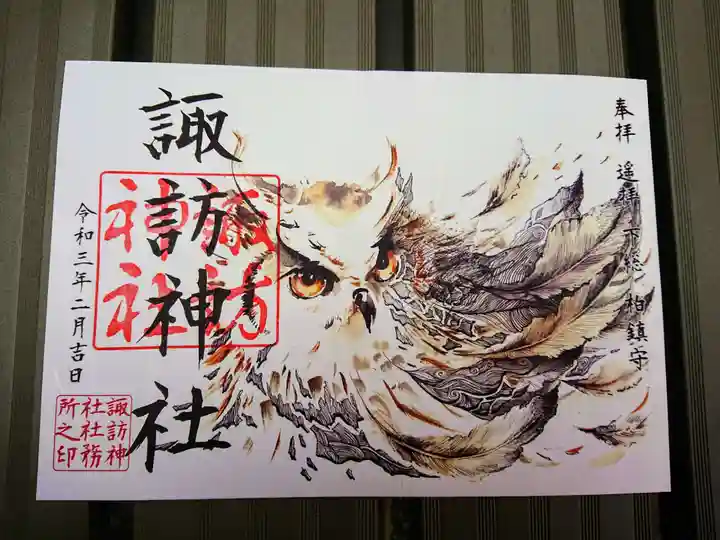 奉拝 遥拝 下総 柏鎮守
諏訪神社
諏訪
神社
令和三年二月吉日
諏訪神
社社務
所之印